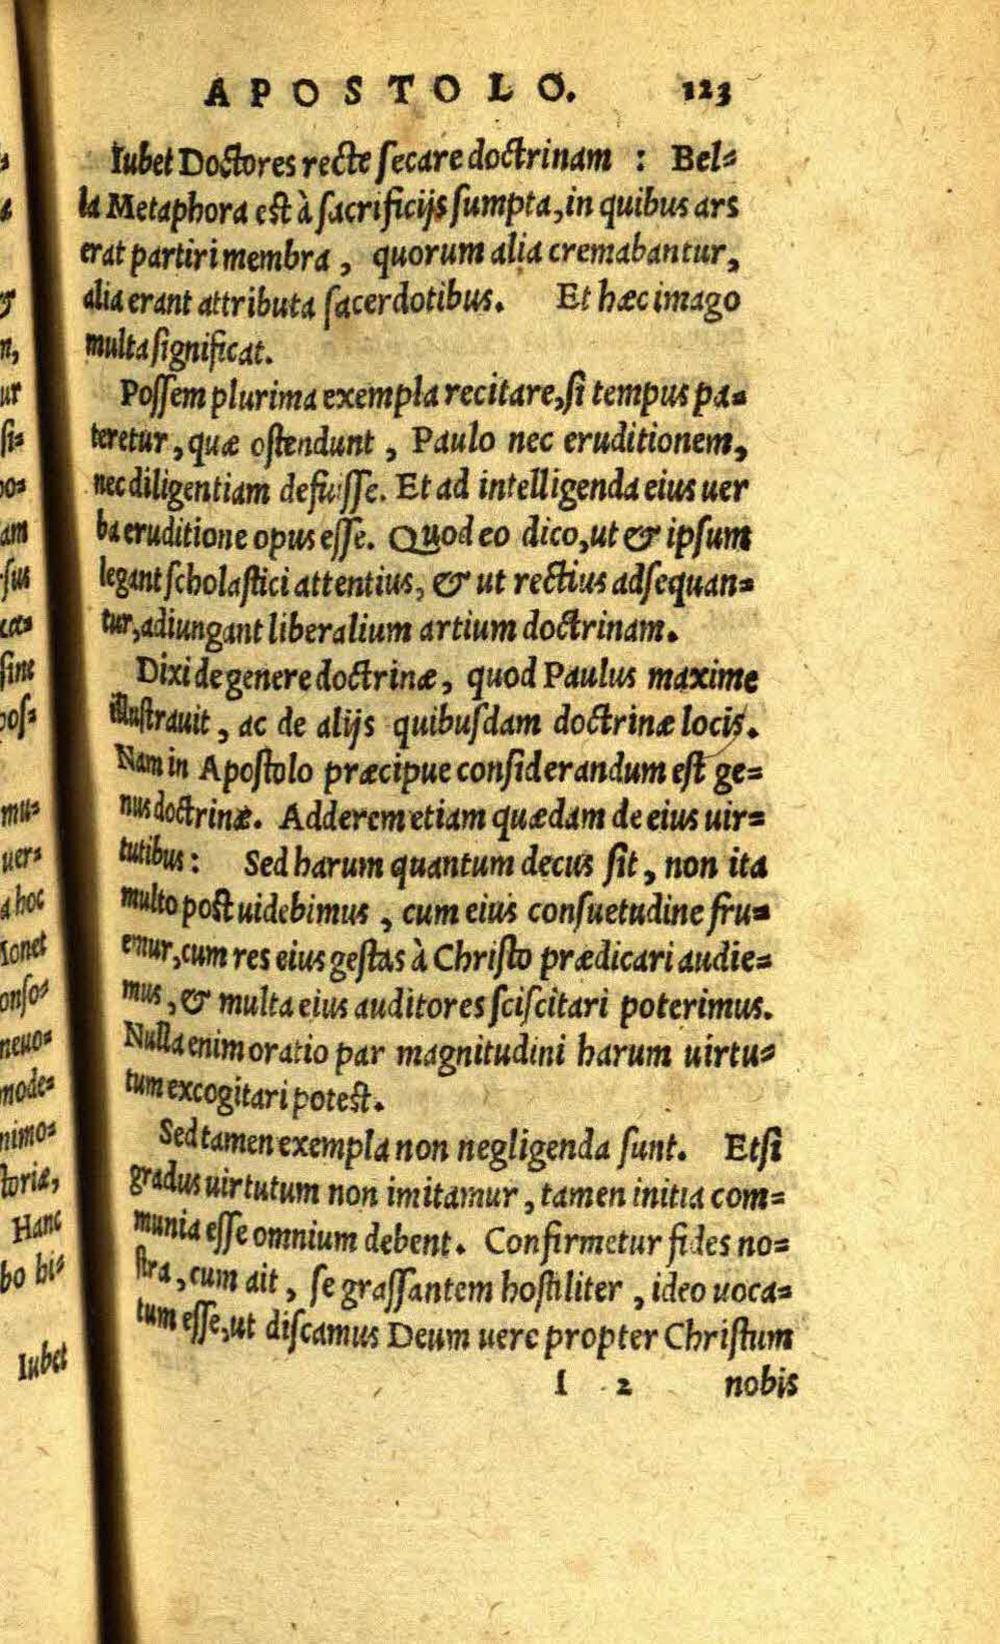 APOSTOLO. 123
Iubet Doctores recte ſecare doctrinam : Bel=
la Metaphora est à ſacrificijs ſumpta, in quibus ars
erat partiri membra, quorum alia cremabantur,
alia erant attributa ſacerdotibus. Et hæc imago
multa ſignificat.
Poſſem plurima exempla recitare, ſi tempus pa=
teretur, quæ oſtendunt, Paulo nec eruditionem,
nec diligentiam defuiſſe. Et ad intelligenda eius uer
ba eruditione opus eſſe. Quod eo dico, ut & ipſum
legant ſcholaſtici attentius, & ut rectius adſequan=
tur, adiungant liberalium artium doctrinam.
Dixi de genere doctrinæ, quod Paulus maxime
illuſtrauit, ac de alijs quibuſdam doctrinæ locis.
Nam in Apoſtolo præcipue conſiderandum eſt ge=
nus doctrinæ. Adderem etiam quædam de eius uir=
tutibus: Sed harum quantum decus ſit, non ita
multo post uidebimus, cum eius conſuetudine fru=
emur, cum res eius geſtas à Chriſto prædicari audie=
mus, & multa eius auditores ſciſcitari poterimus.
Nulla enim oratio par magnitudini harum uirtu=
tum excogitari potest.
Sed tamen exempla non negligenda ſunt. Etſi
gradus uirtutum non imitamur, tamen initia com=
munia eſſe omnium debent. Confirmetur fides no=
ſtra, cum ait, ſe graſſantem hoſtiliter, ideo uoca=
tum eſſe, ut diſcamus Deum uere propter Chriſtum
I 2 nobis
n,
ur
ſi=
am
ſine
poſ=
mu=
uer=
a hoc
onſo=
neuo=
mode=
nimo=
toriæ,
Hanc
bo hi=
Iubet